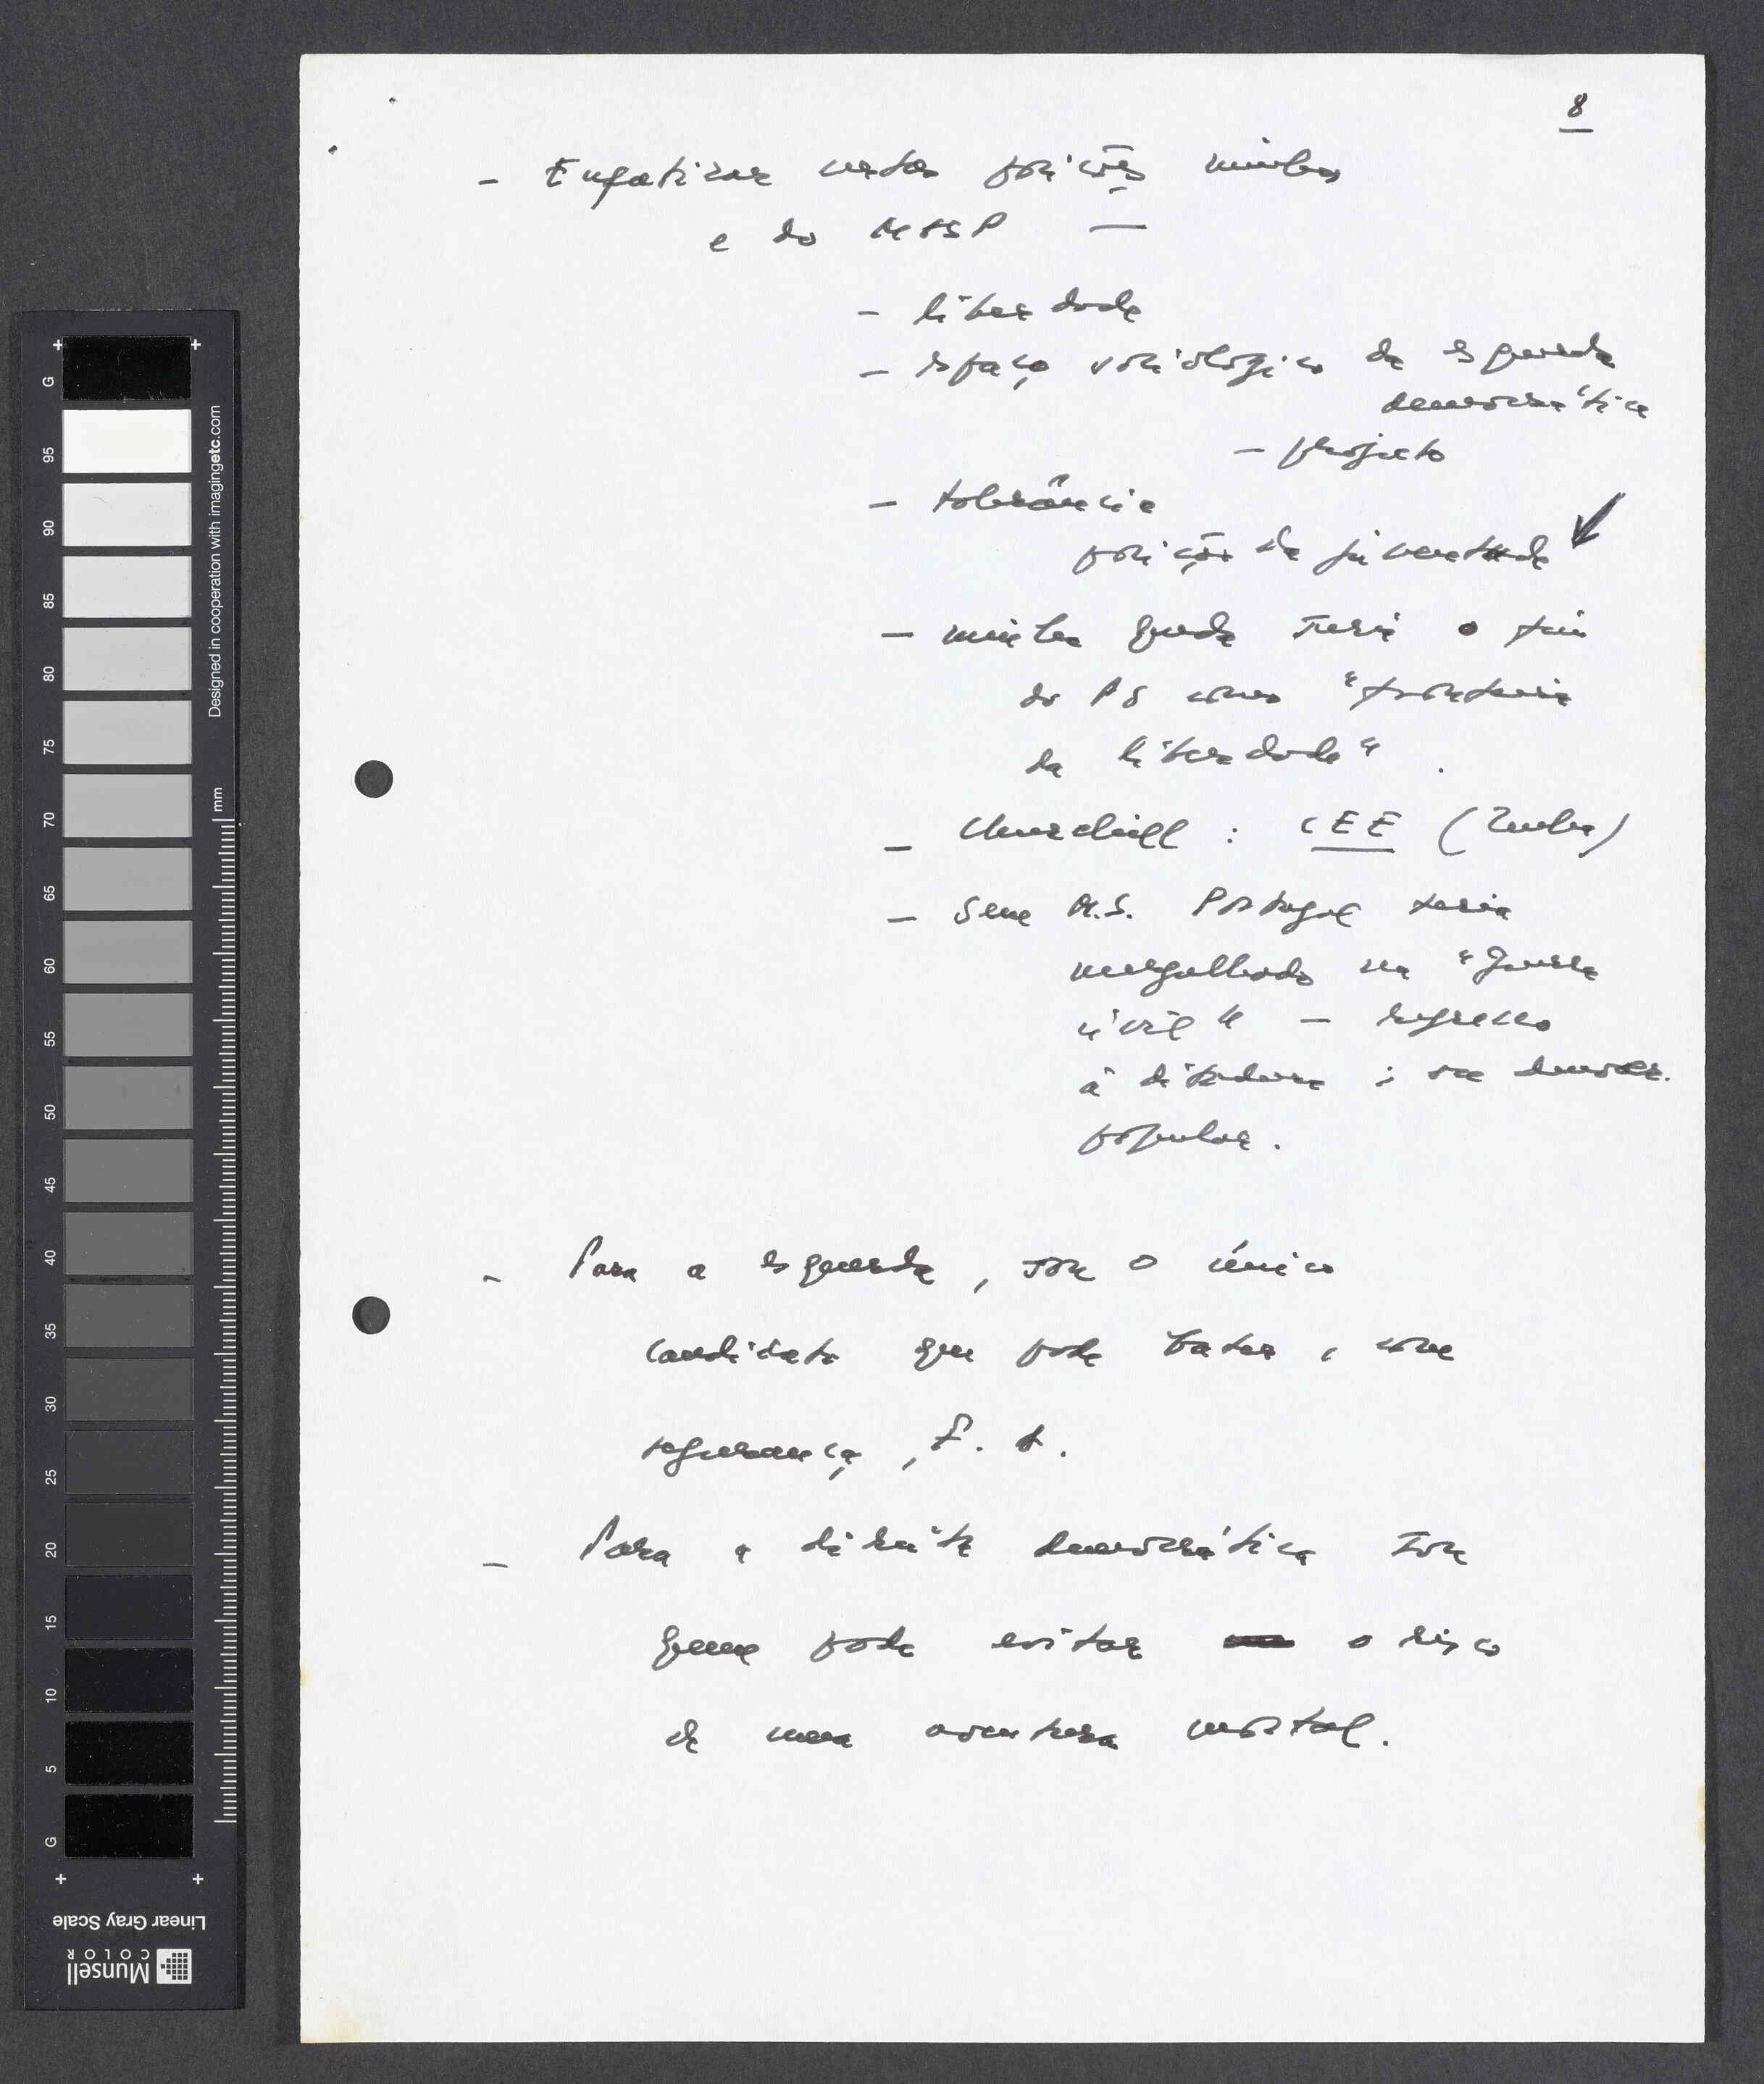 8
- Enfatizar certas posições minhas
e do MASP —
- liberdade
- espaço sociológico da esquerda
democrática
- projecto
- tolerância
posição da juventude
- minha queda seria o fim
do PS como "fronteira
da liberdade".
- Churchill : CEE
- Sem M.S. Portugal teria
mergulhado na "guerra
civil" - regresso
à ditadura ; ou democr.
popular.
- Para a esquerda, sou o único
candidato que pode bater, com
segurança, F. A.
- Para a direita democrática sou
quem pode evitar o risco
de uma aventura mortal.
G
95
90
85
80
75
70
65
60
55
50
45
40
35
30
25
20
15
10
5
G
mm
Designed in cooperation with imagingetc.com
Linear Gray Scale
Munsell
COLOR